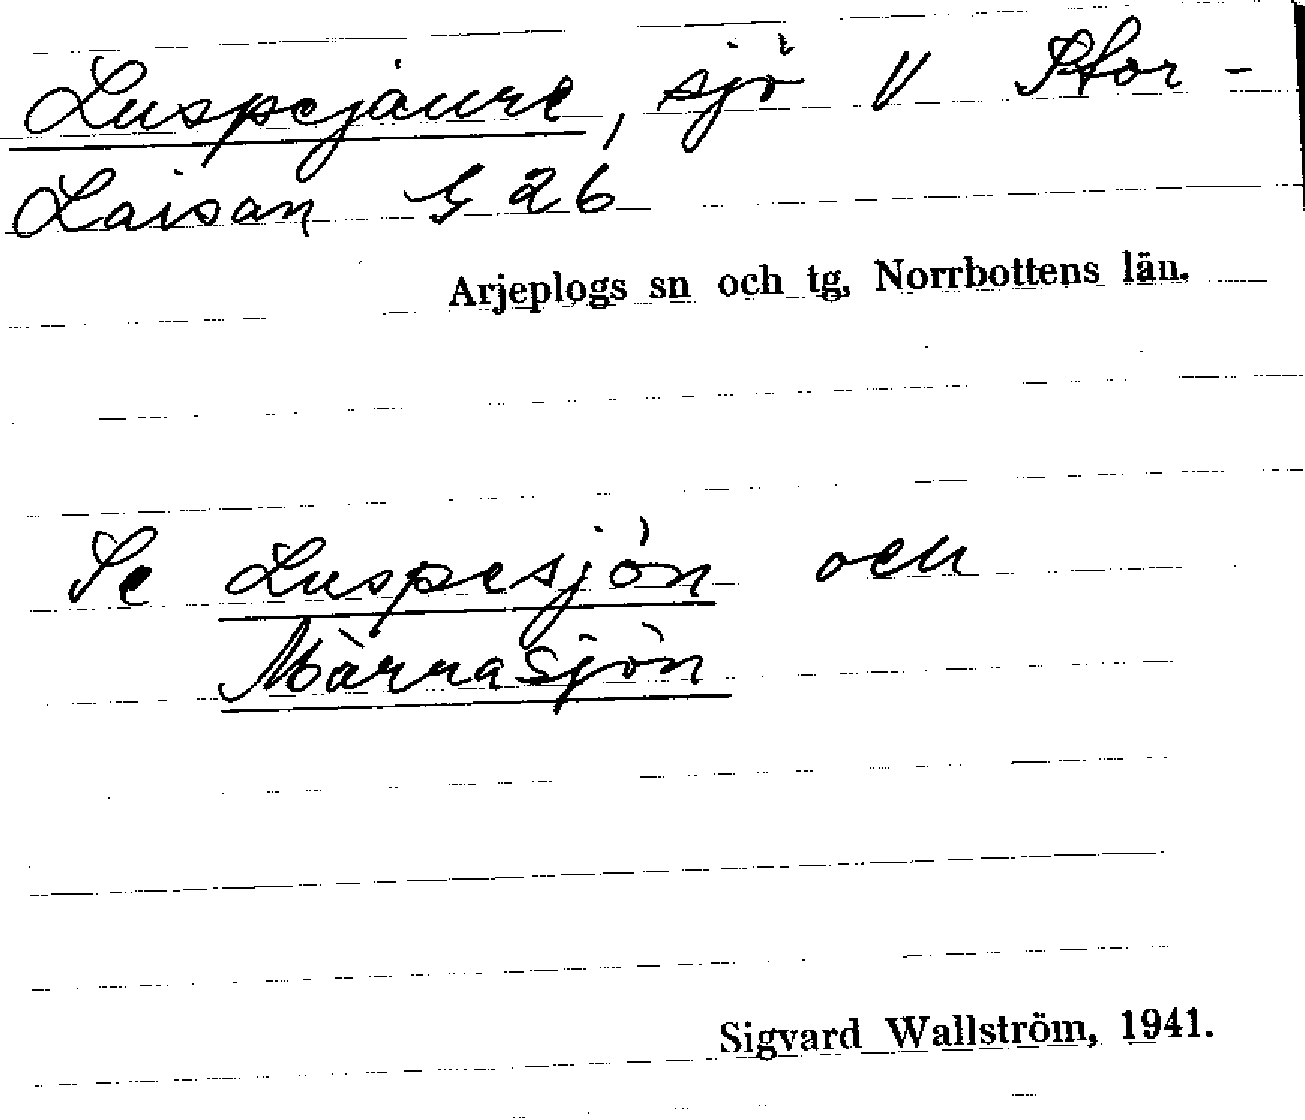 Luspejaure, sjö V Stor-
Laisan G 26
Arjeplogs sn och tg, Norrbottens län.
Se Luspesjön och
Märrasjön
Sigvard Wallström, 1941.